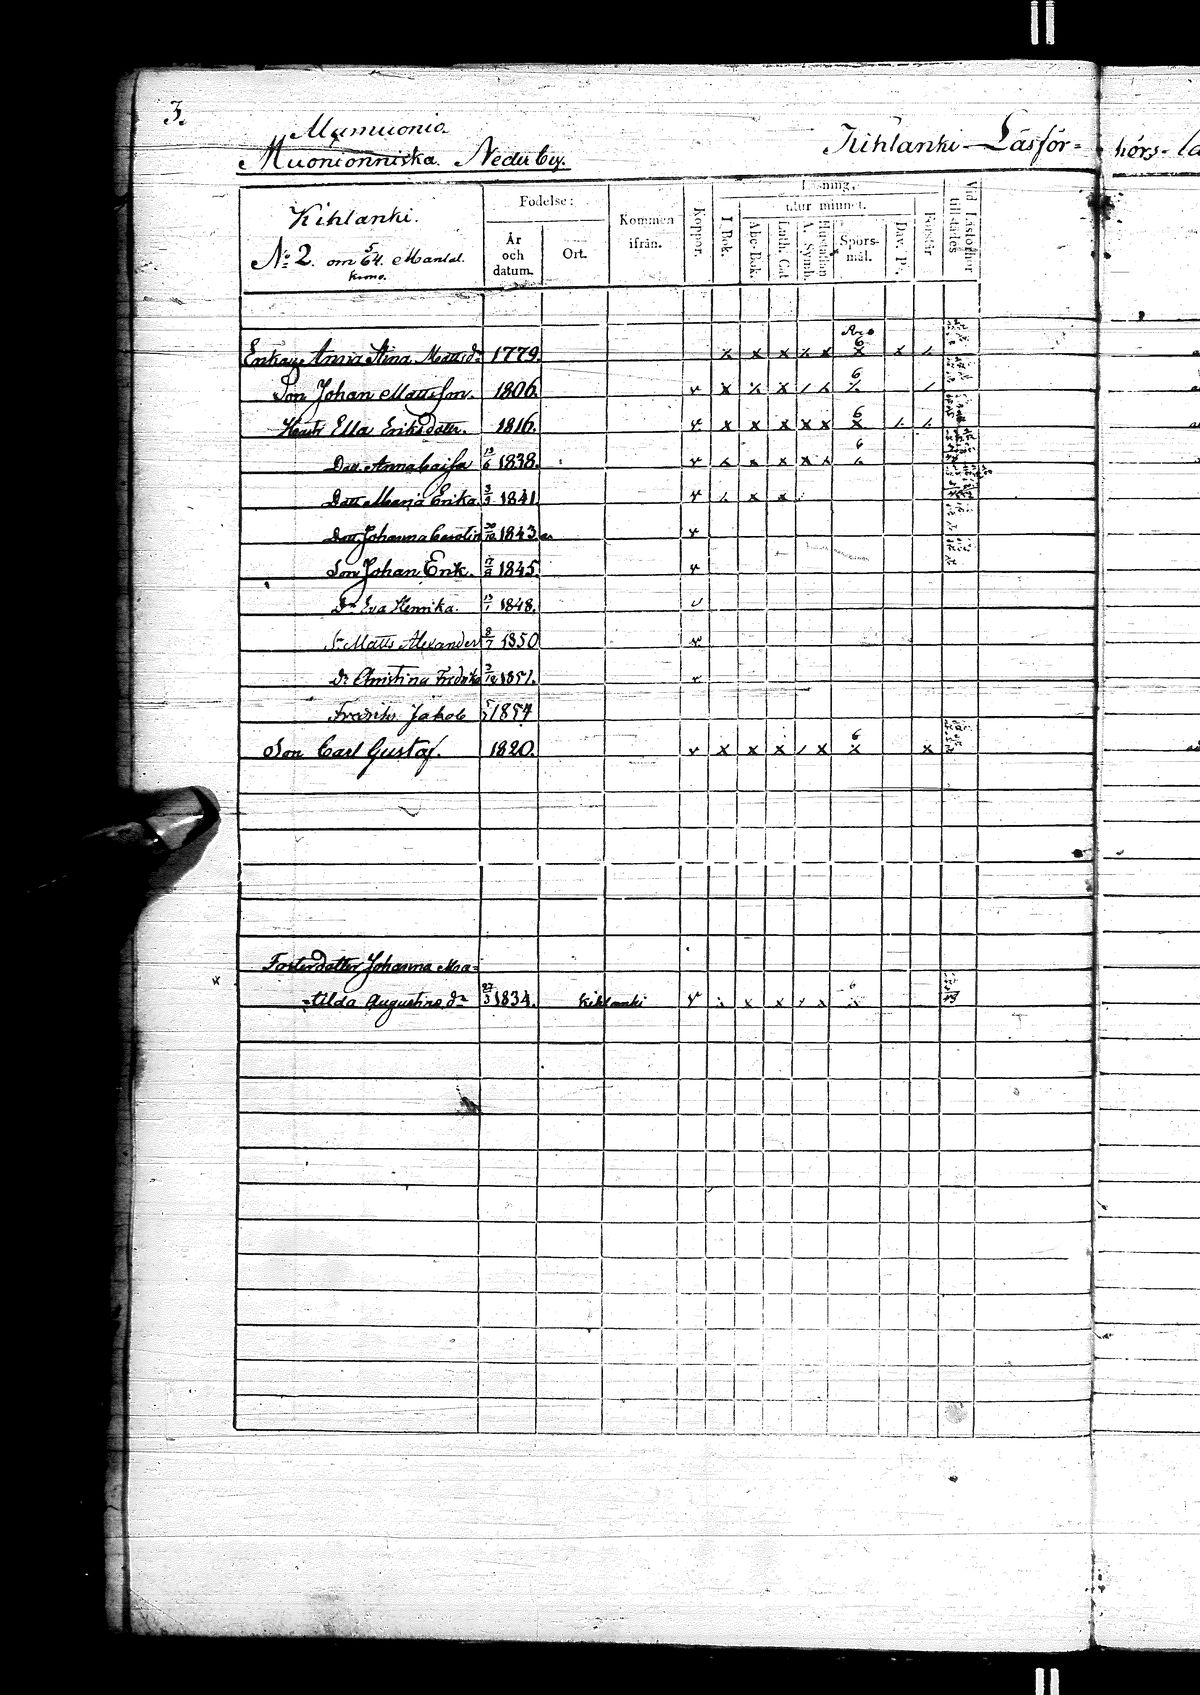 3.
Muonio
Muonionniska. Nederby.
Kihlanki Läsför=
hörs-
Kihlanki.
No 2. om 5/64 Mantal.
krono.
Fodelse:
År
och
datum.
Ort.
Kommen
ifrån.
Koppor.
Läsning,
utur minnet.
I Bok.
Abc-Bok.
Luth. Cat
A. Symb.
Hustaflan
Spörs-
mål.
Dav. Ps.
Förstår
Vid Läsförhör
tillstädes
Enkan Anna Stina Mattsdr 1779.
Son Johan Mattsson. 1806. 6
Hustr Ella Eriksdotter. 1816. 6
Dott. Anna Caisa 13/6 1838. 6
Dott Maria Erika. 3/3 1841.
Dott Johanna Carolina 30/10 1843.
Son Johan Erik. 17/9 1845.
Dr Eva Henrika. 13/1 1848.
Sn Matts Alexander 8/7 1850
Dr Christina Fredrika 3/12 1851.
Fredrik Jakob 1854
Son Carl Gustaf. 1820. 6
Fosterdotter Johanna Ma=
=tilda Augustina dr 27/3 1834. Kihlanki 6